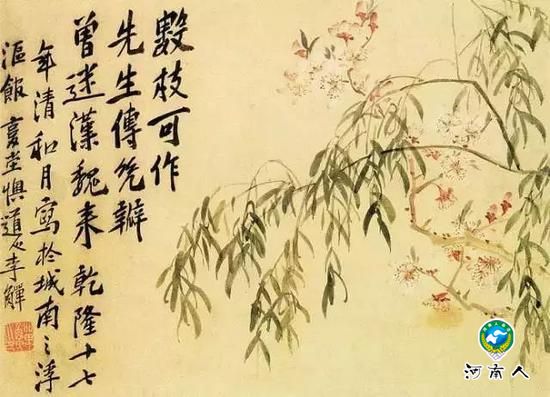 數枝可作
先生傳幾瓣
曾迷漢魏来 乾隆十七
年清和月寫於城南之浮
漚館復堂懊道人李鱓
河南人